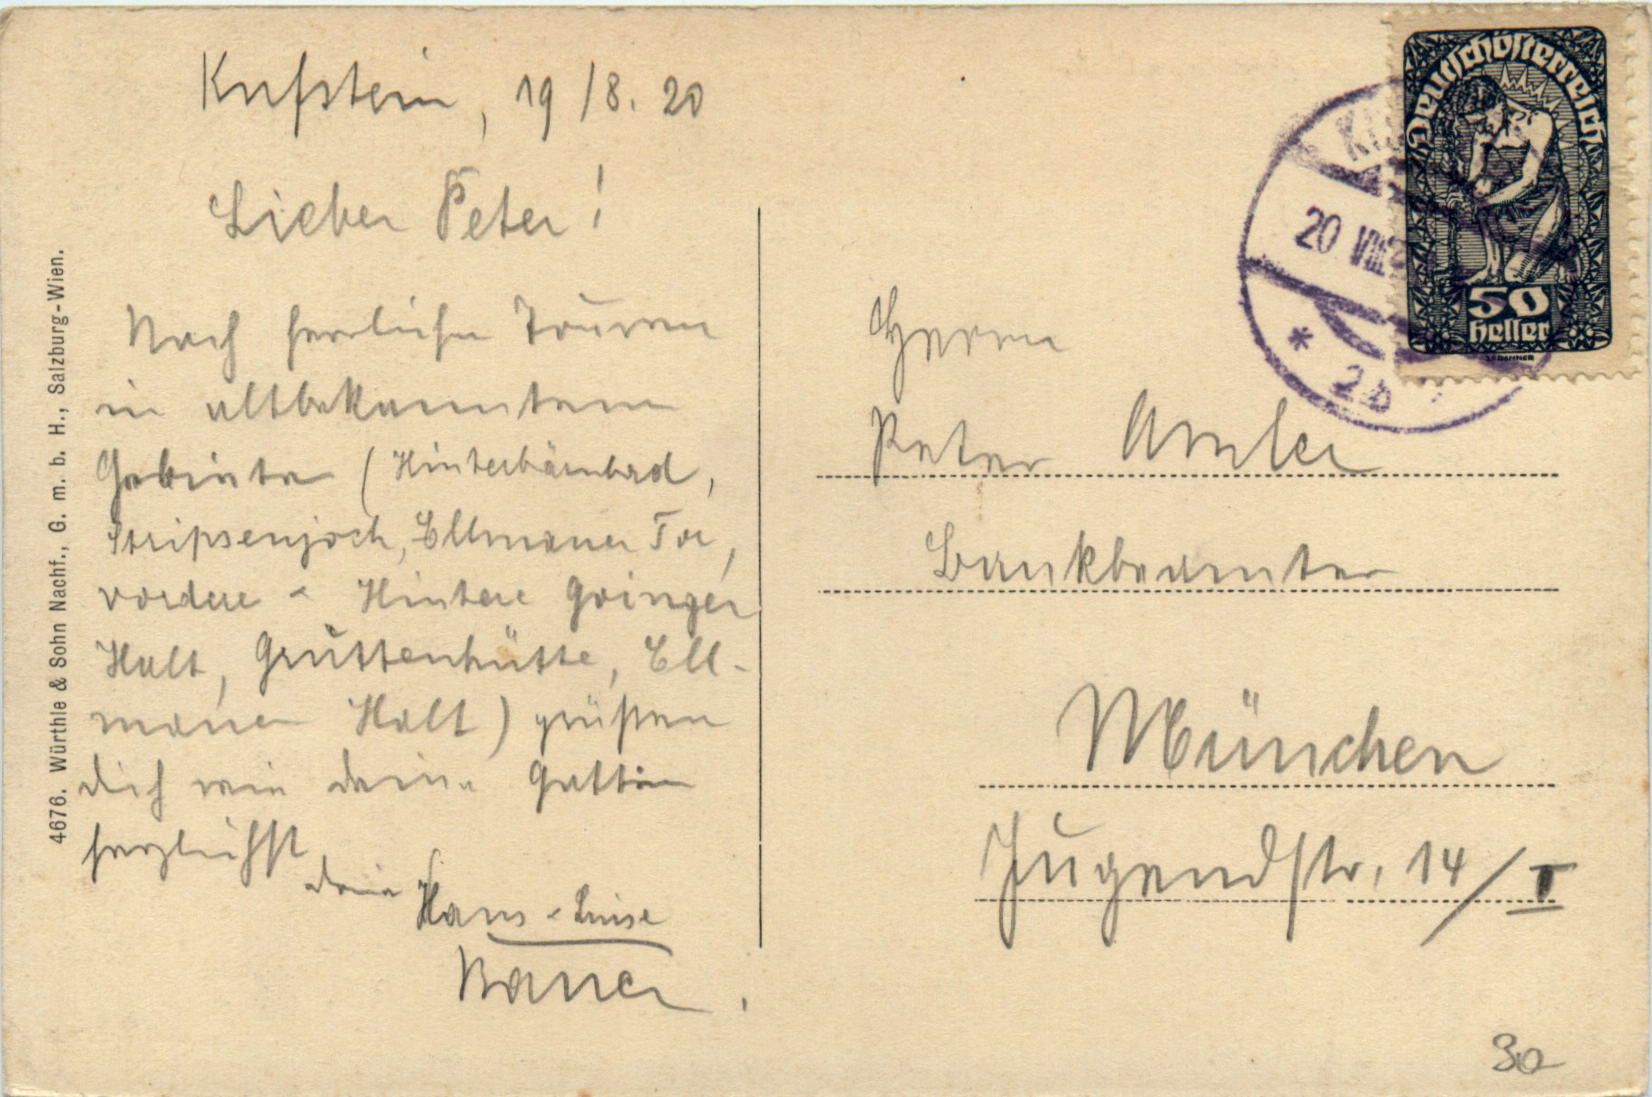 Kufstein, 19/8. 20
Lieber Peter!
Nach herrlichen Touren
in altbekanntem
Gebiete (Hinterbärnbad,
Stripsenjoch, Ellmauer Tor,
vordere & Hintere Goinger
Halt, Gruttenhütte, Ell-
mauer Halt) grüßen
dich wie deine Gattin
herzlichst
dein Hans & Luise
Bauer.
4676. Würthle & Sohn Nachf., G. m. b. H., Salzburg-Wien.
Deutschösterreich
50
Heller
20 VIII
* 2b
Herrn
Peter Amler
Bankbeamter
München
Jugendstr. 14/I
30